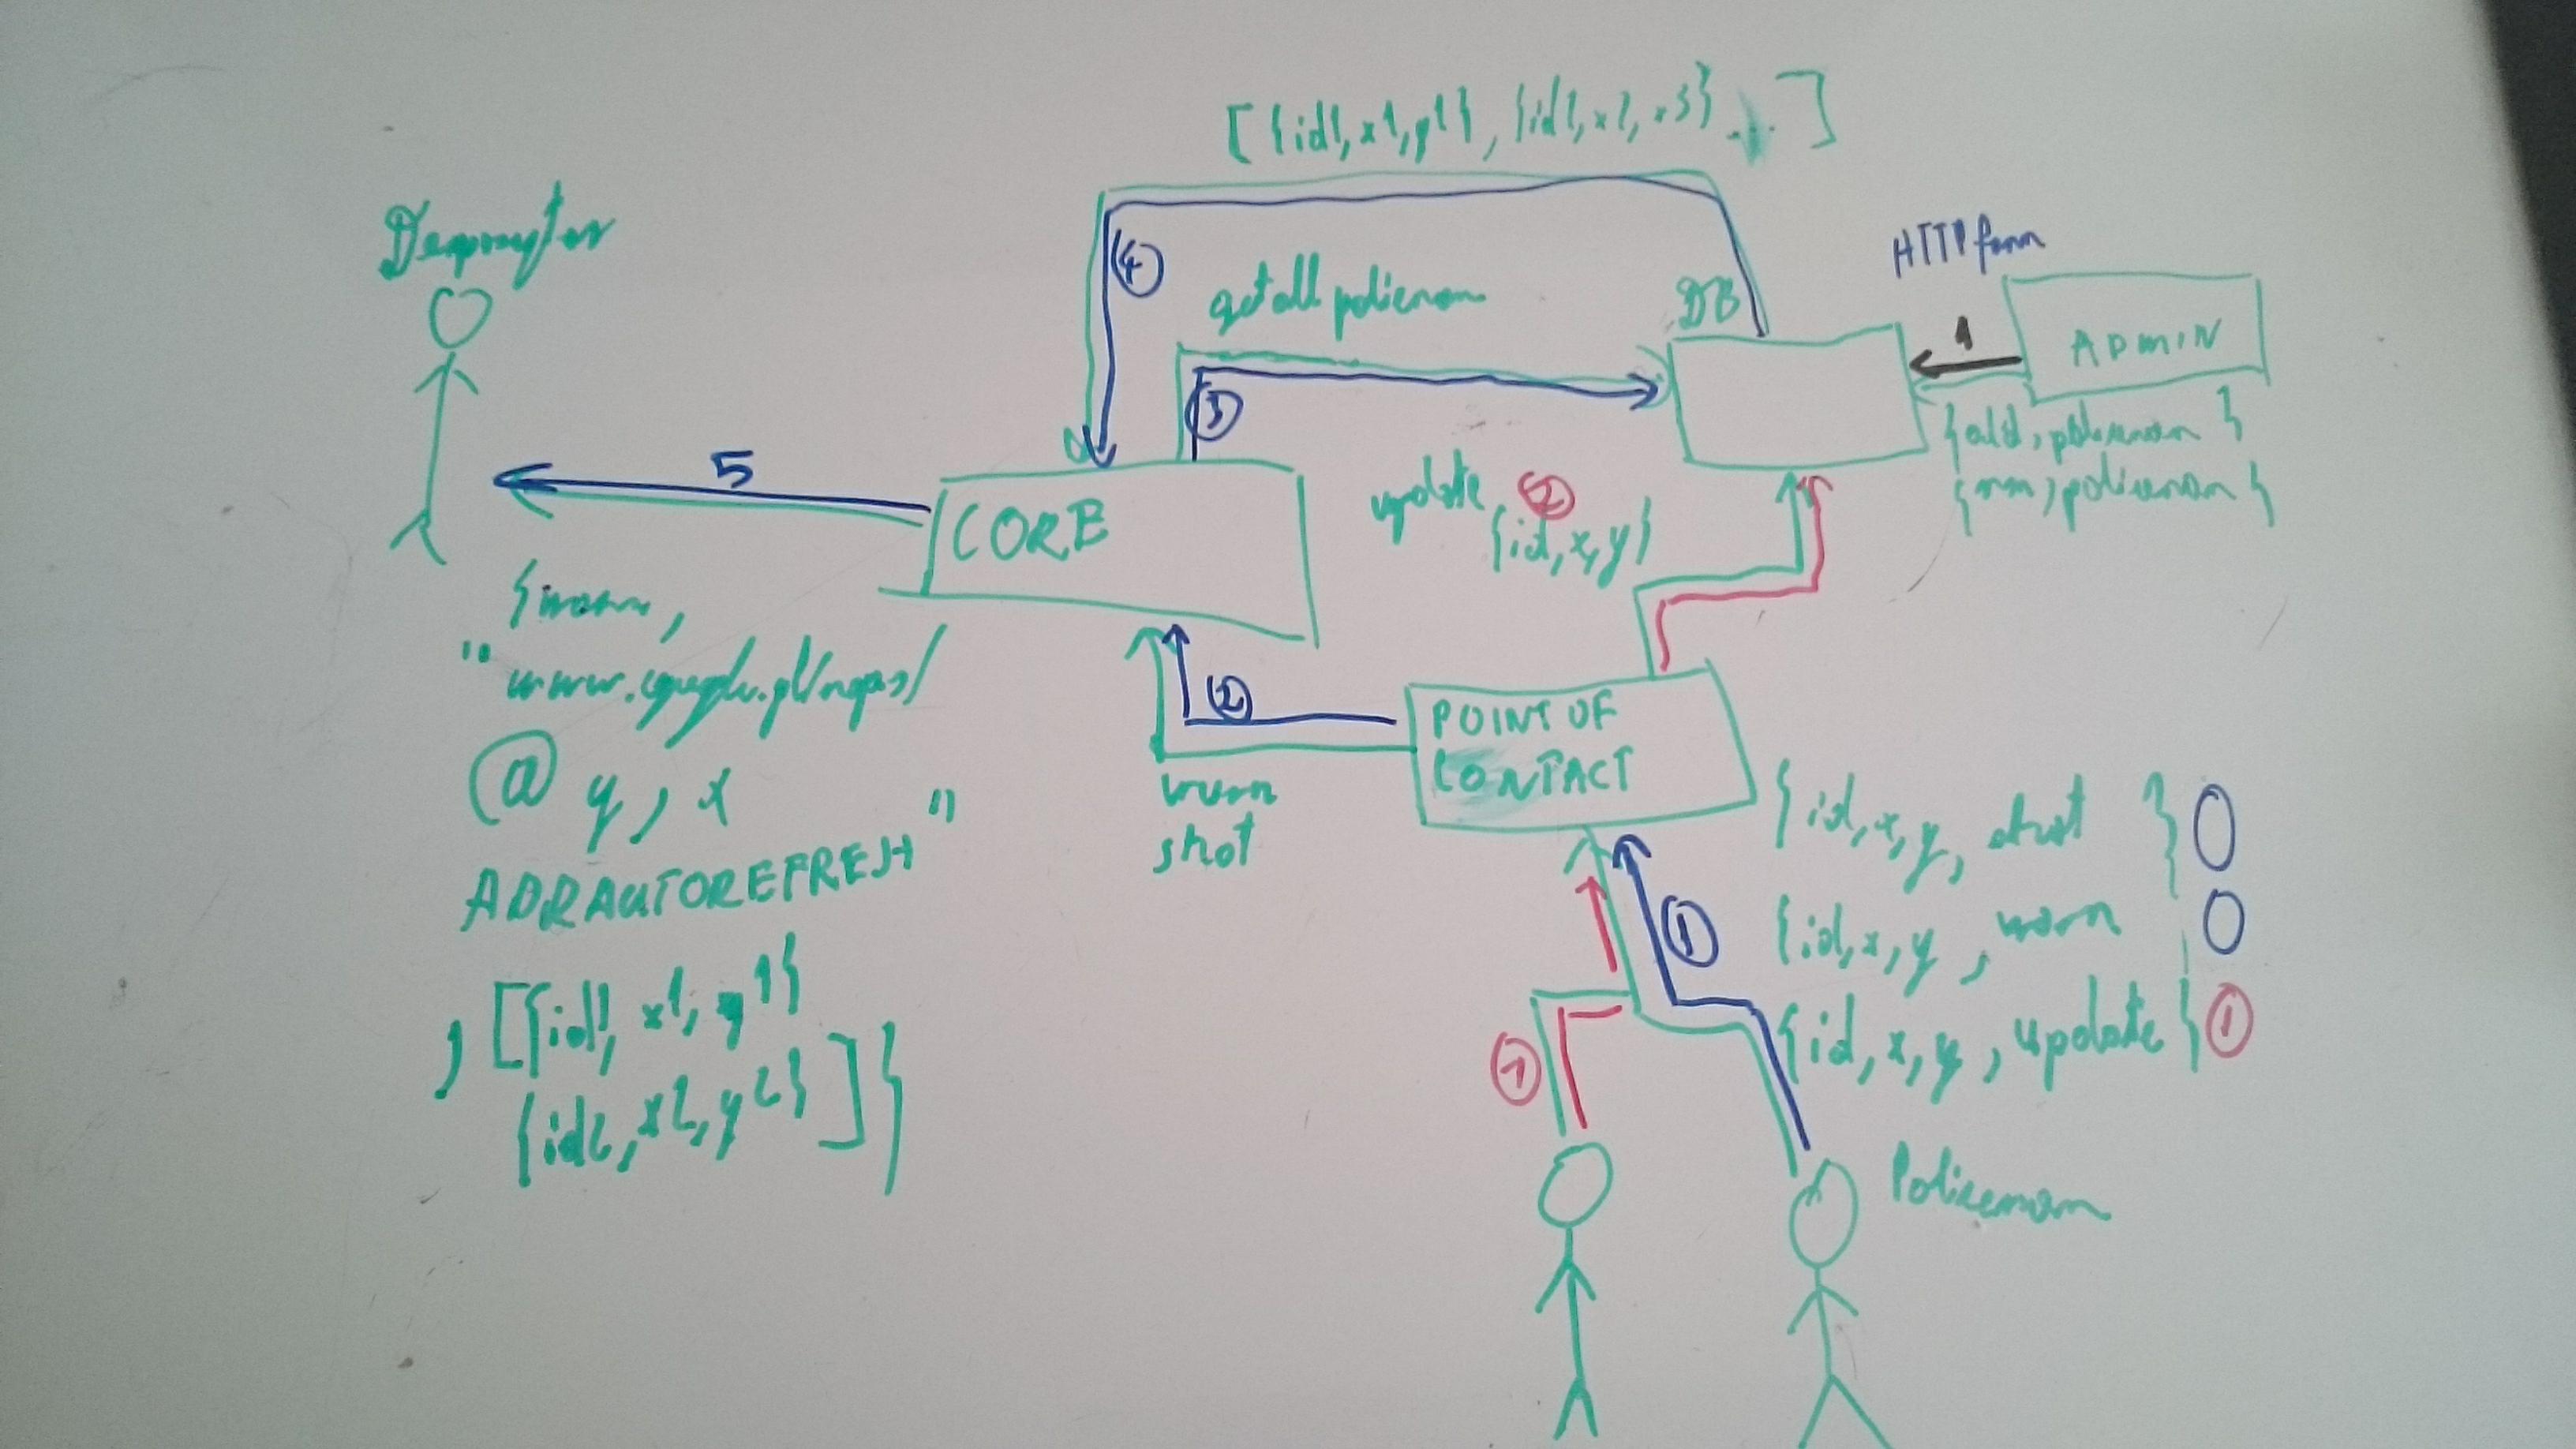 [{id1, x1, y1}, {id2, x2, x3} ... ]
HTTP form
4
get all policeman
DB
1
ADMIN
3
{add, policeman }
{ policeman }
5
update 2
{id, x, y}
CORE
{warn,
"www.google.pl/maps/
@ y, x
ADDRAUTOREFRESH"
, [{id1, x1, y1}
{id2, x2, y2} ] }
2
POINT OF
CONTACT
warn
shot
{id, x, y, shot }
{id, x, y, warn
{id, x, y, update } 1
1
1
Policeman